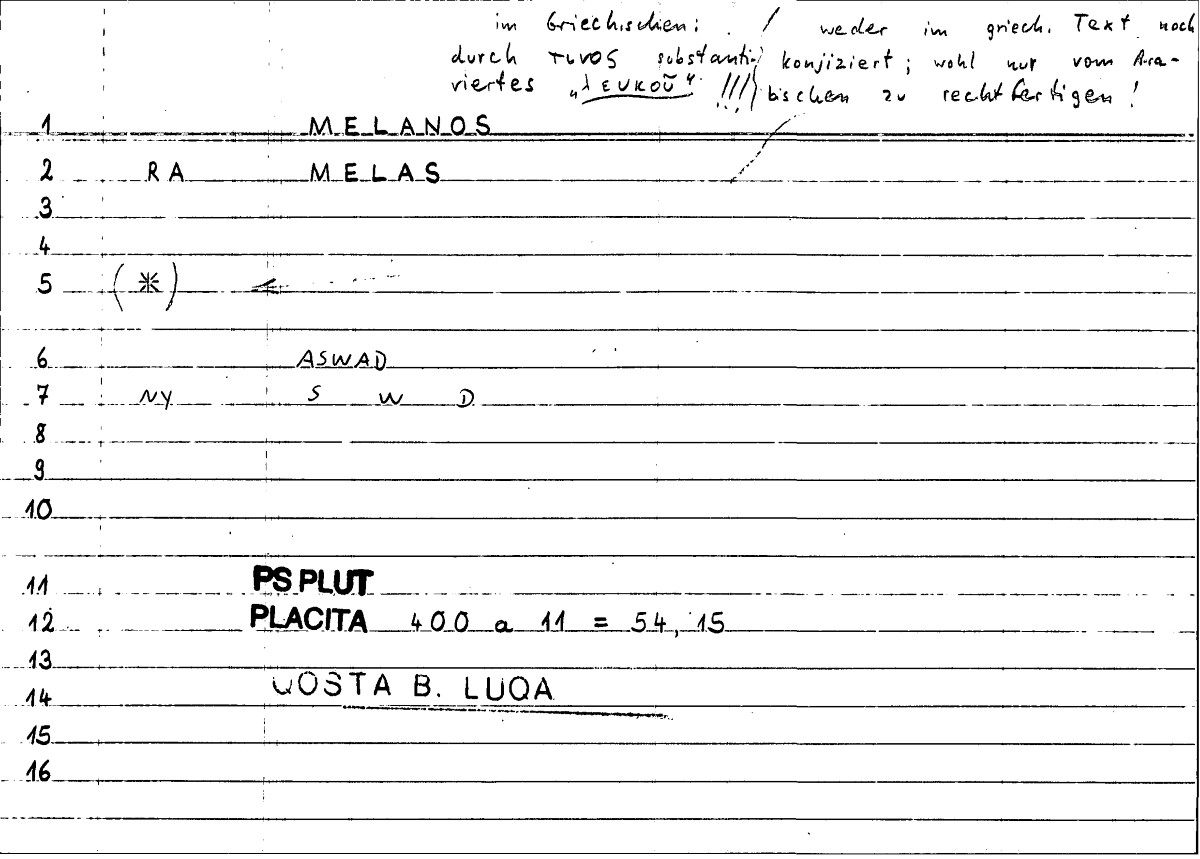 im Griechischen: / weder im griech. Text noch
durch τινος substanti- konjiziert; wohl nur vom Ara-
viertes „λευκοῦ“ !!! bischen zu rechtfertigen!
1 MELANOS
2 RA MELAS
3
4
5 (*)
6 ASWAD
7 NY S W D
8
9
10
11 PS PLUT
12 PLACITA 400 a 11 = 54, 15
13
14 QOSTA B. LUQA
15
16